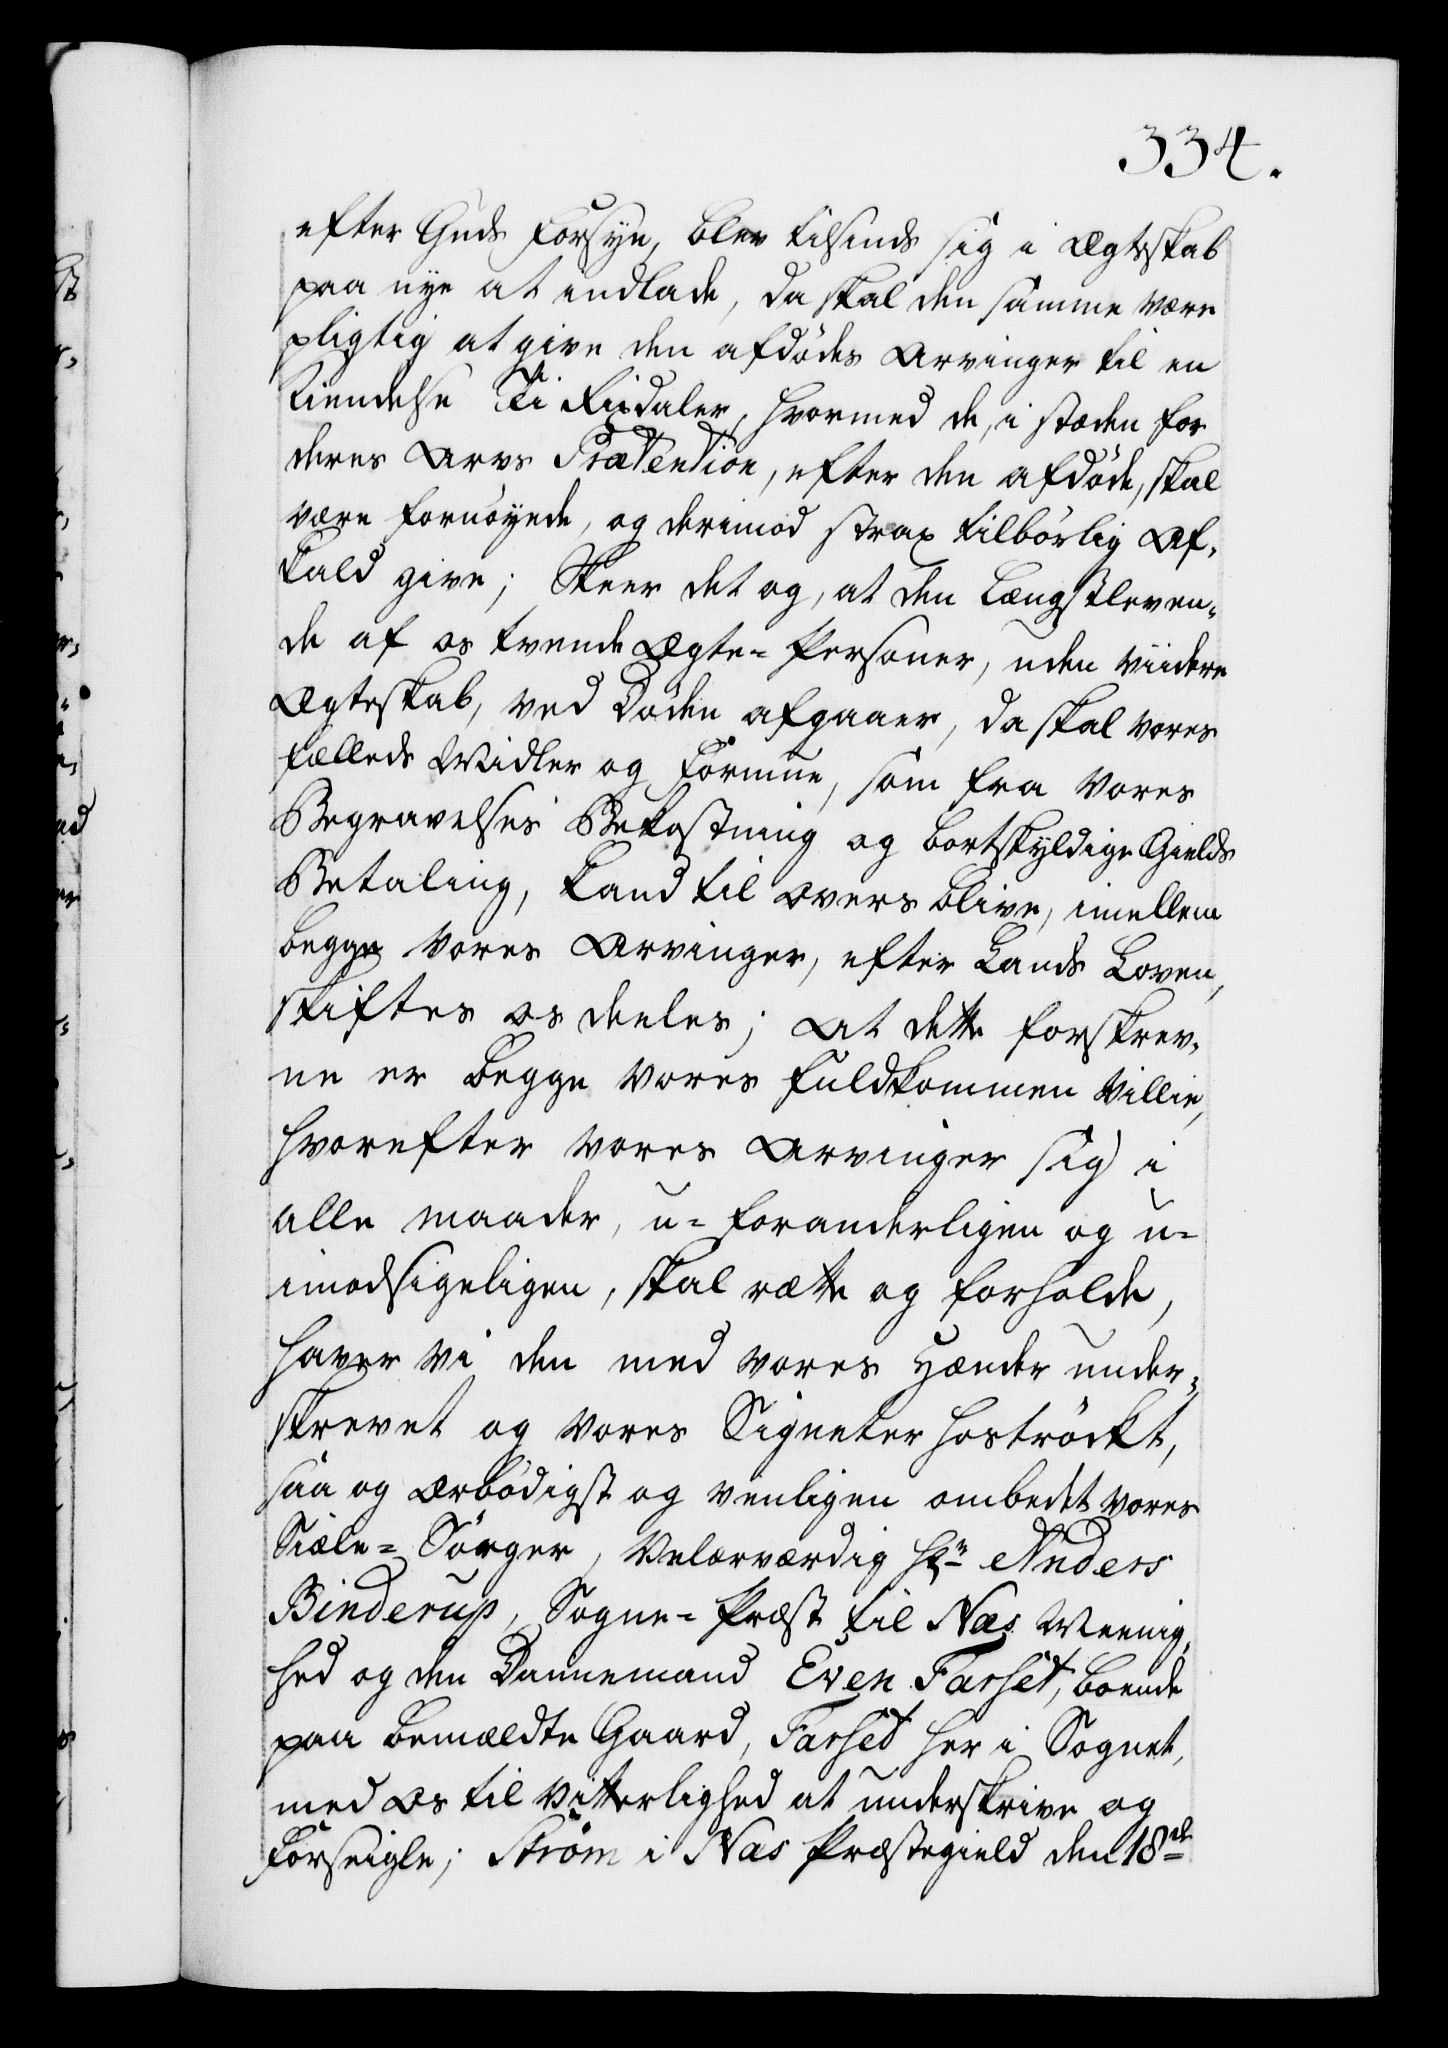 334.
efter Guds Forsyn, blev tilsinds sig i Ægteskab
paa nye at indlade, da skal den samme være
pligtig at give den afdödes Arvinger til en
Kiendelse Ti Rixdaler, hvormed de, i stæden for
deres Arvs Prætention, efter den afdöde, skal
være fornöyede, og derimod strax tilbörlig Af-
kald give; Skeer det og, at den Længstleven-
de af os tvende Ægte-Personer, uden viidere
Ægteskab, ved Döden afgaaer, da skal vores
fælleds Midler og Formue, som fra vores
Begravelses Bekostning og bortskyldige Gields
Betaling, kand til overs blive, imellem
begge vores Arvinger, efter Lands Loven,
skiftes os deeles; At dette forskrev-
ne er begge vores fuldkommen Villie,
hvorefter vores Arvinger sig i
alle maader, u-foranderligen og u-
imodsigeligen, skal rætte og forholde,
haver vi den med vores Hænder under-
skrevet og vores Signeter hoströckt,
saa og ærbödigst og venligen ombedet vores
Siæle-Sörger, Velærværdig Hr. Anders
Binderup, Sogne-Præst til Næs Meenig-
hed og den Dannemand Even Farset, boende
paa bemældte Gaard, Farsed her i Sognet,
med os til Vitterlighed at underskrive og
forseigle; Ström i Næs Præstegield den 18de